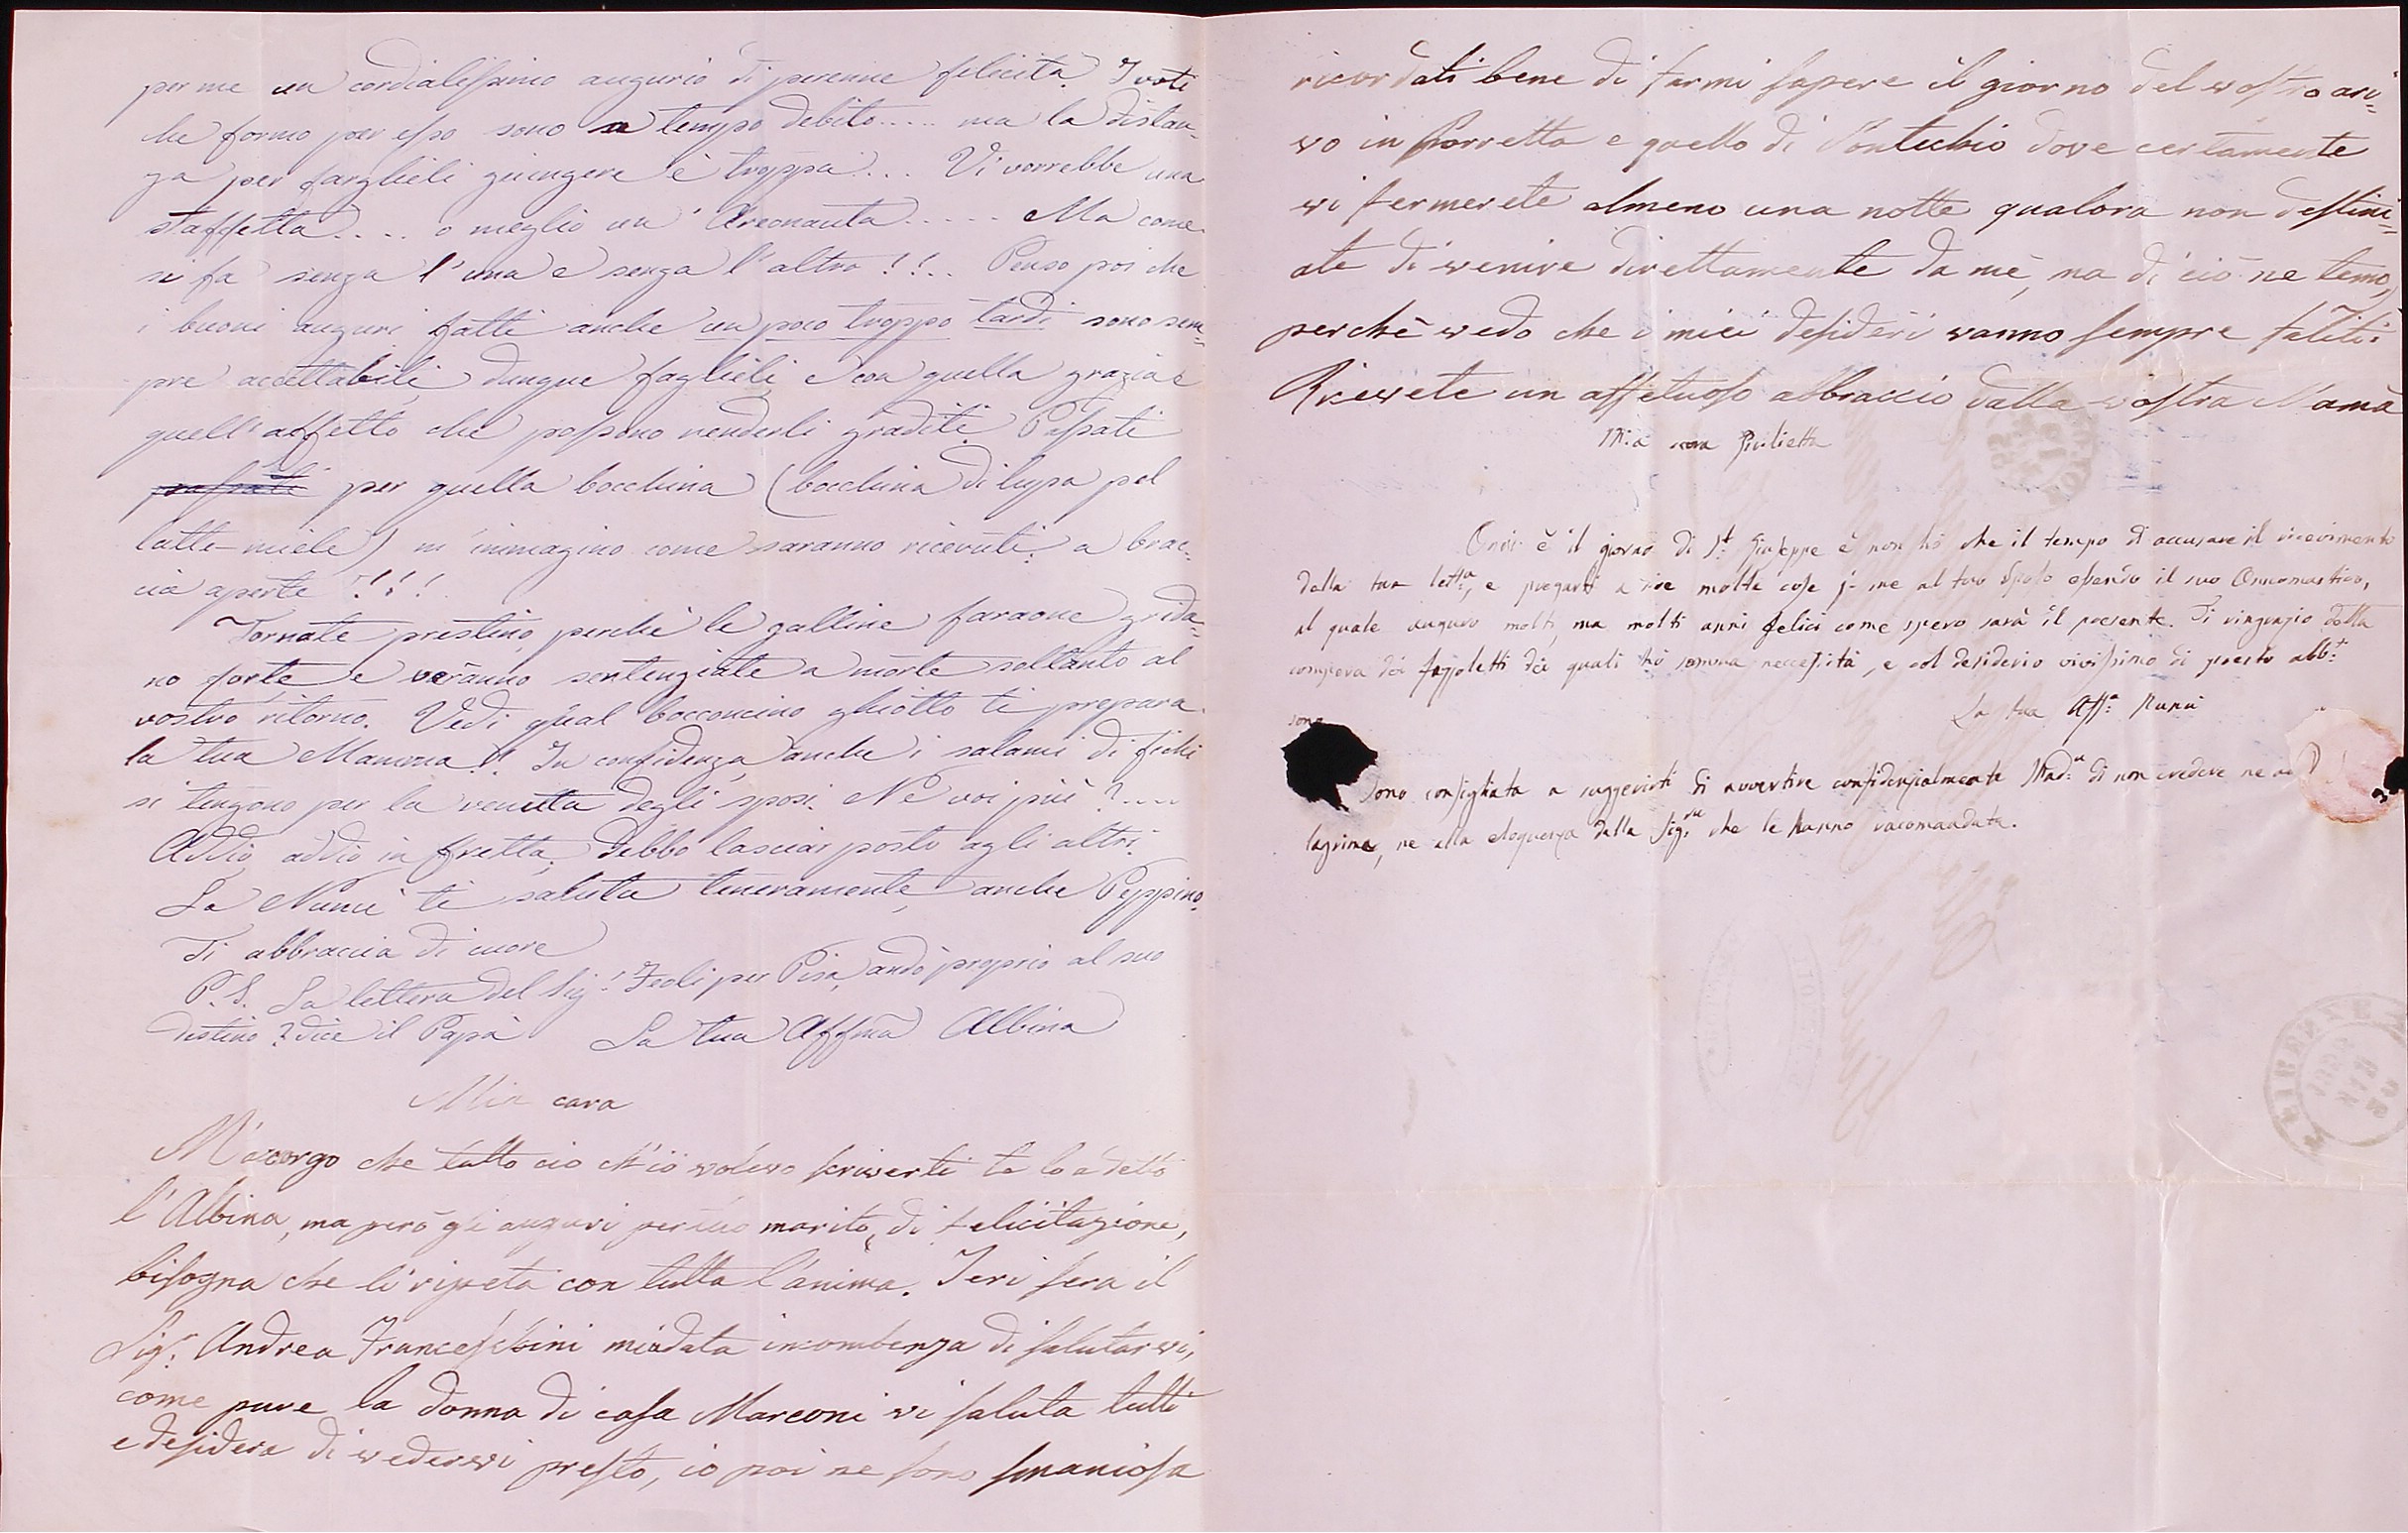 per me un cordialissimo augurio di perenne felicità. I voti
che formo per esso sono a tempo debito..... ma la distan-
za per farglieli giungere è troppa... Vi vorrebbe una
staffetta.... o meglio un' Areonauta..... Ma come
si fa senza l'una e senza l'altro!!.. Penso poi che
i buoni auguri fatti anche un poco troppo tardi sono sem=
pre accettabili, dunque faglieli, e con quella grazia e
quell'affetto che possono renderli graditi. Passati
passati per quella bocchina (bocchina di lupa pel
latte-miele) m'immagino come saranno ricevuti: a brac-
cia aperte!!!!
Tornate prestino, perchè le galline faraone grida=
no forte e veranno sentenziate a morte soltanto al
vostro ritorno. Vedi qual bocconcino ghiotto ti prepara
la tua Mamma!! In confidenza, anche i salami di fichi
si tengono per la venuta degli sposi. Ne voi più?....
Addio, addio in fretta, debbo lasciar posto agli altri.
La Nunù ti saluta teneramente, anche Peppino.
Ti abbraccia di cuore
P.S. La lettera del Sig.r Feoli per Pisa, andò proprio al suo
destino? dice il Papà La tua Affma Albina
Mia cara
M'acorgo che tutto cio ch'iò volevo scriverti te lo a detto
l'Albina, ma però gli auguri per tuo marito, di felicitazione,
bisogna che li ripeta con tutta l'anima. Jeri sera il
Sig.r Andrea Franceschini mi à data incombenza di salutarvi,
come pure la donna di casa Marconi vi saluta tutti
e desidera di vedervi presto, io poi ne sono smaniosa
ricordati bene di farmi sapere il giorno del vostro ari=
vo in Porretta e quello di Pontechio dove certamente
vi fermerete almeno una notte qualora non destini=
ate di venire direttamente da mè, ma di ciò ne temo,
perchè vedo che i miei desideri vanno sempre faliti:
Ricevete un affetuoso abbraccio dalla vostra Mamà
Mia cara Giulietta
Oggi è il giorno di S.t Giuseppe e non hò che il tempo di accusare il ricevimento
della tua lett.a, e pregarti a dire molte cose p. me al tuo Sposo essendo il suo Onnomastico,
al quale auguro molti, ma molti anni felici come spero sarà il presente. Ti ringrazio della
compera dei fazzoletti dei quali hò somma neccessità, e col desiderio vivissimo di presto abb.ti
sono
La tua Aff.a Nunù
Sono consigliata a suggerirti di avvertire confidenzialmente Mad.a di non credere ne
lagrime, ne alla eloquenza della Sig.ra che le hanno racomandata.